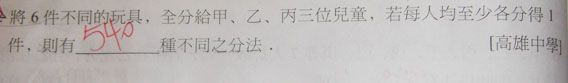 將 6 件不同的玩具，全分給甲、乙、丙三位兒童，若每人均至少各分得 1
件，則有 540 種不同之分法． [高雄中學]